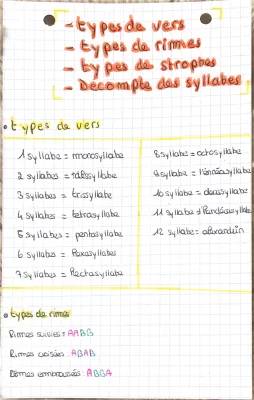 - types de vers
- types de rimes
- types de strophes
- Décompte des syllabes
• types de vers
1 syllabe = monosyllabe
2 syllabes =
3 syllabes = trisyllabe
4 syllabes = tetrasyllabe
5 syllabes = pentasyllabe
6 syllabes = hexasyllabes
7 syllabes = hectasyllabe
8 syllabes = octosyllabe
9 syllabe = l'ennéasyllabe
10 syllabe = decasyllabe
11 syllabe =
12 syllabe = alexandrin
• types de rimes
Rimes suivies : AABB
Rimes croisées : ABAB
Rimes embrassées : ABBA